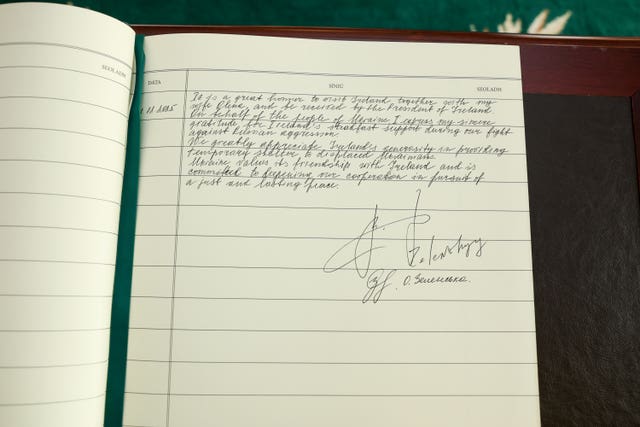 SEOLADH
DATA SÍNIÚ SEOLADH
It is a great honour to visit Ireland, together with my
wife Olena, and be received by the President of Ireland.
On behalf of the people of Ukraine I express my sincere
gratitude for Ireland's steadfast support during our fight
against Russian aggression.
We greatly appreciate Ireland's generosity in providing
temporary shelter to displaced Ukrainians.
Ukraine values its friendship with Ireland and is
committed to deepening our cooperation in pursuit of
a just and lasting peace.
Zelenskyy
О. Зеленська.